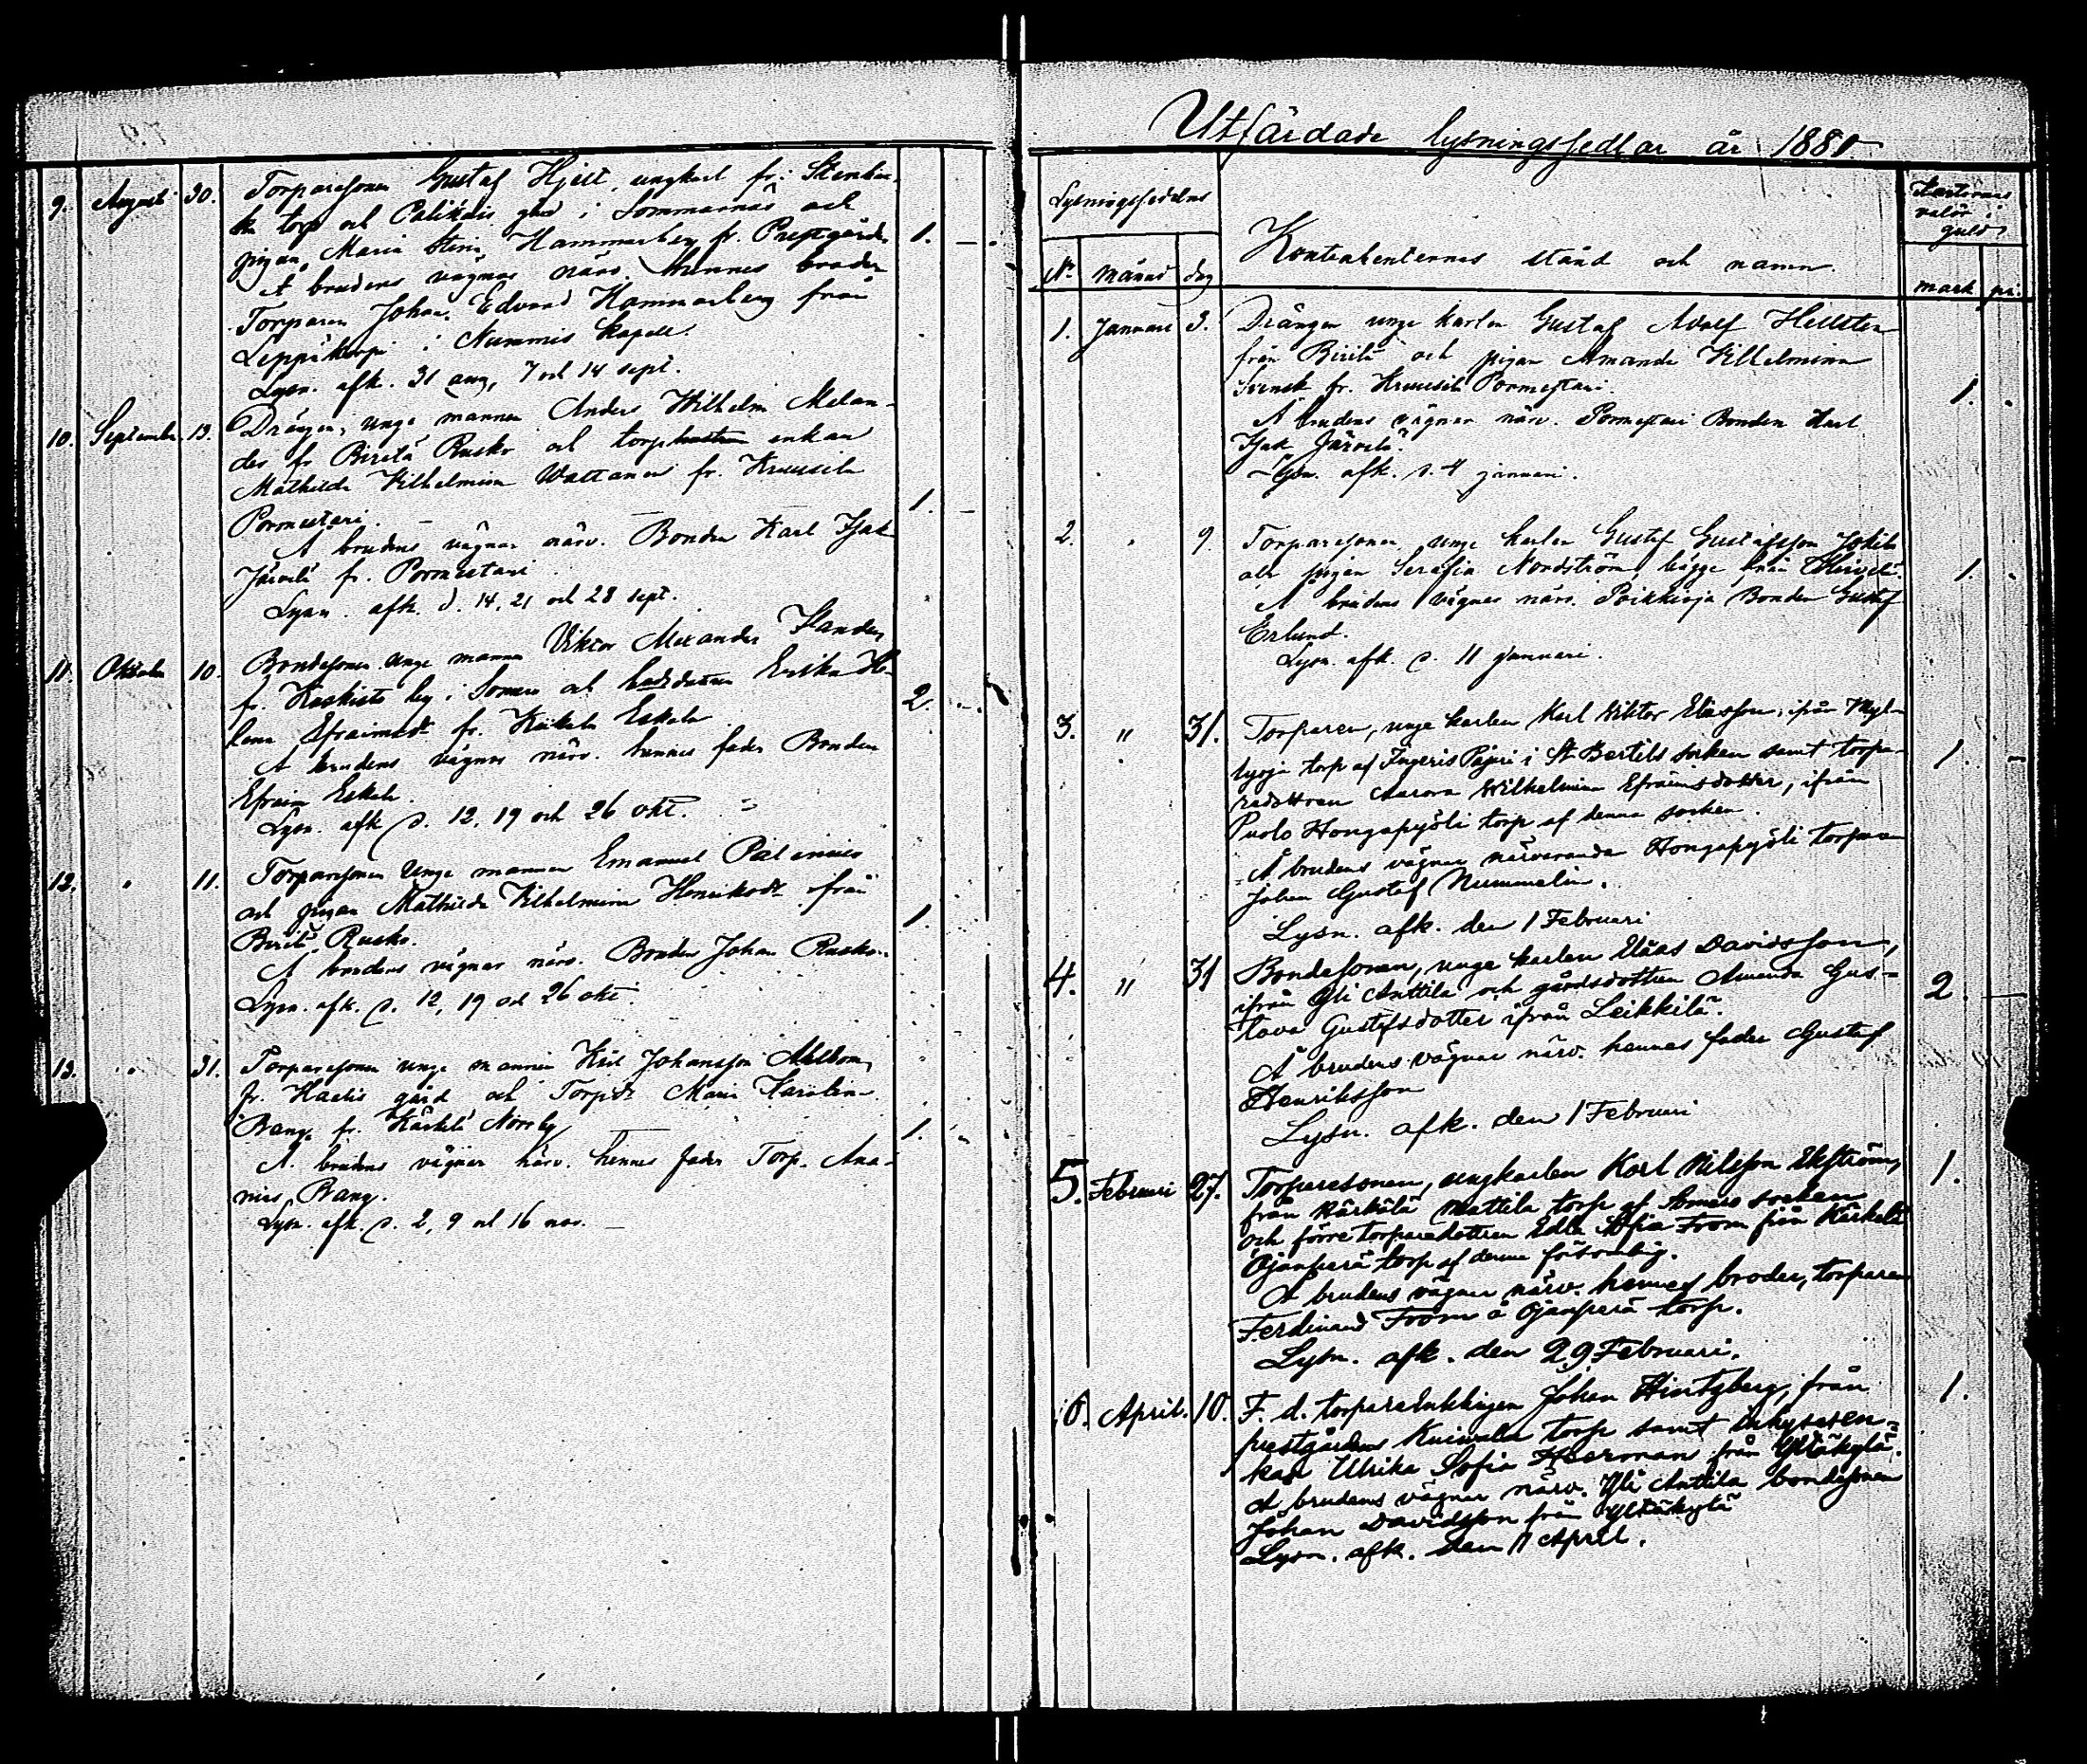 9. Augusti 30. Torparesonen Gustaf Hjelt, ungkarl fr.
torp och Palikais gård i Sommarnäs och
pigan Maria Stina Hammarberg fr. Prestgård. 1. —
Å brudens vägnar närv. hennes broder
Torparen Johan Edvard Hammarberg från
Leppäkorpi i Nummis kapell.
Lysn. afk. 31 aug, 7 och 14 sept.
10. September 13. Drängen, unge mannen Anders Wilhelm Melan-
der fr Biritä Rusko och enkan
Mathilda Vilhelmina Wattanen fr. Kruusila
Pormestari. 1. —
Å brudens vägnar närv. Bonden Karl Isak
Järvelä fr. Pormestari
Lysn. afk. d. 14, 21 och 28 sept.
11. Oktober 10. Bondesonen unge mannen Viktor Alexander
fr. Kaskisto by i Somero och Erika He-
lena Efraimsdr fr. Kiikala Eskola 2. —
Å brudens vägnar närv. hennes fader Bonden
Efraim Eskola.
Lysn. afk d. 12, 19 och 26 okt.
12. " 11. Torparesonen Unge mannen Emanuel
och pigan Mathilda Vilhelmina Henriksdr från
Biritä Rusko. 1.
Å brudens vägnar närv. Bonden Johan Rusko.
Lysn. afk. d. 12, 19 och 26 okt.
13. " 31. Torparesonen unge mannen Johansson Ahlbom,
fr. gård och Torpdr Maria Karolina
Bang, fr. Kärkelä Norrby 1. "
Å brudens vägnar närv. hennes fader Torp. Ana-
nias Bang.
Lysn. afk. d. 2, 9 och 16 nov.
Utfärdade lysningssedlar år 1880
Lysningssedelns
Kontrahenternes stånd och namn.
valör i
guld
No månad dag mark pi.
1. Januari 3. Drängen unge karlen Gustaf Adolf Hellsten
från Biritä och pigan Amanda Vilhelmina
Svensk fr. Kruusila Pormestari. 1.
Å brudens vägnar närv. Pormestari Bonden Karl
Isak Järvelä.
Lysn. afk. d. 4 januari.
2. " 9. Torparesonen unge karlen Gustaf Gustafsson
och pigan Serafia Nordström, bägge från 1.
Å brudens vägnar närv. Poikkioja Bonden Gustaf
Erlund.
Lysn. afk. d. 11 Januari.
3. " 31. Torparen, unge karlen Karl Viktor Eliasson, ifrån Myl-
lyoja torp af Ingeris Pajari i St Bertils socken samt torpa- 1. —
redottren Aurora Wilhelmina Efraimsdotter, ifrån
Puolo Hongapyöli torp af denna socken
Å brudens vägnar närvarande Hongapyöli torparen
Johan Gustaf Nummelin.
Lysn. afk. den 1 Februari
4. " 31 Bondesonen, unge karlen Elias Davidsson,
ifrån Yli Anttila och gårdsdottren Amanda Gus- 2. —
tava Gustafsdotter ifrån Leikkilä.
Å brudens vägnar närv. hennes fader Gustaf
Henriksson
Lysn. afk. den 1 Februari
5. Februari 27. Torparesonen, ungkarlen Karl Nilsson Ekström, 1.
från Kärkelä Mattila torp af Somero socken
och förre torparedottren Edla Sofia From från Kärkelä
Ojanperä torp af denna församling.
Å brudens vägnar närv. hennes broder, torparen
Ferdinand From å Ojanperä torp.
Lysn. afk. den 29 Februari.
6. April. 10. F. d. torpareenklingen Johan Hintzberg, från 1.
prestgårdens torp samt inhyseen-
kan Ulrika Sofia Heerman från Yltäkylä.
Å brudens vägnar närv. Yli Anttila bondesonen
Johan Davidsson från Yltäkylä
Lysn. afk. den 11 April.